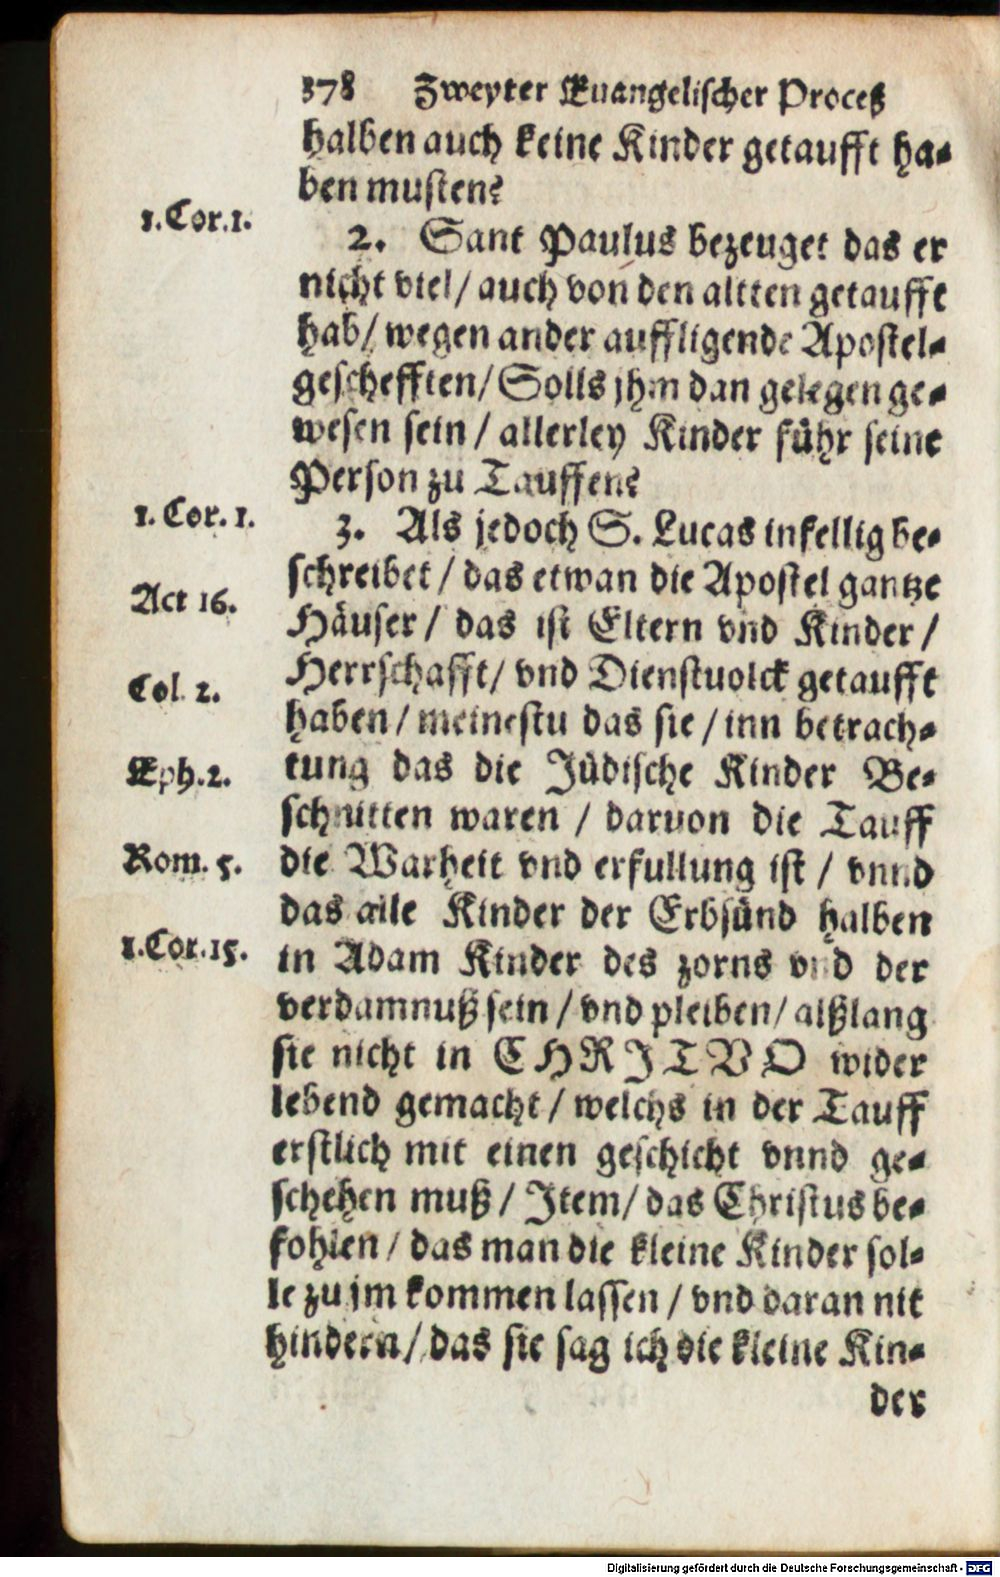 378 Zweyter Euangelischer Proceß
halben auch keine Kinder getaufft ha-
ben musten?
1. Cor. 1.
2. Sant Paulus bezeuget das er
nicht viel / auch von den altten getaufft
hab / wegen ander auffligende Apostel-
geschefften / Solls jhm dan gelegen ge-
wesen sein / allerley Kinder führ seine
Person zu Tauffen?
1. Cor. 1.
3. Als jedoch S. Lucas infellig be-
schreibet / das etwan die Apostel gantze
Act 16.
Häuser / das ist Eltern vnd Kinder /
Herrschafft / vnd Dienstuolck getaufft
Col. 2.
haben / meinestu das sie / inn betrach-
tung das die Jüdische Kinder Be-
Eph. 2.
schnitten waren / daruon die Tauff
die Warheit vnd erfullung ist / vnnd
Rom. 5.
das alle Kinder der Erbsünd halben
in Adam Kinder des zorns vnd der
1. Cor. 15.
verdamnuß sein / vnd pleiben / alßlang
sie nicht in CHRITVO wider
lebend gemacht / welchs in der Tauff
erstlich mit einen geschicht vnnd ge-
schehen muß / Item / das Christus be-
fohlen / das man die kleine Kinder sol-
le zu jm kommen lassen / vnd daran nit
hindern / das sie sag ich die kleine Kin-
der
Digitalisierung gefördert durch die Deutsche Forschungsgemeinschaft - DFG